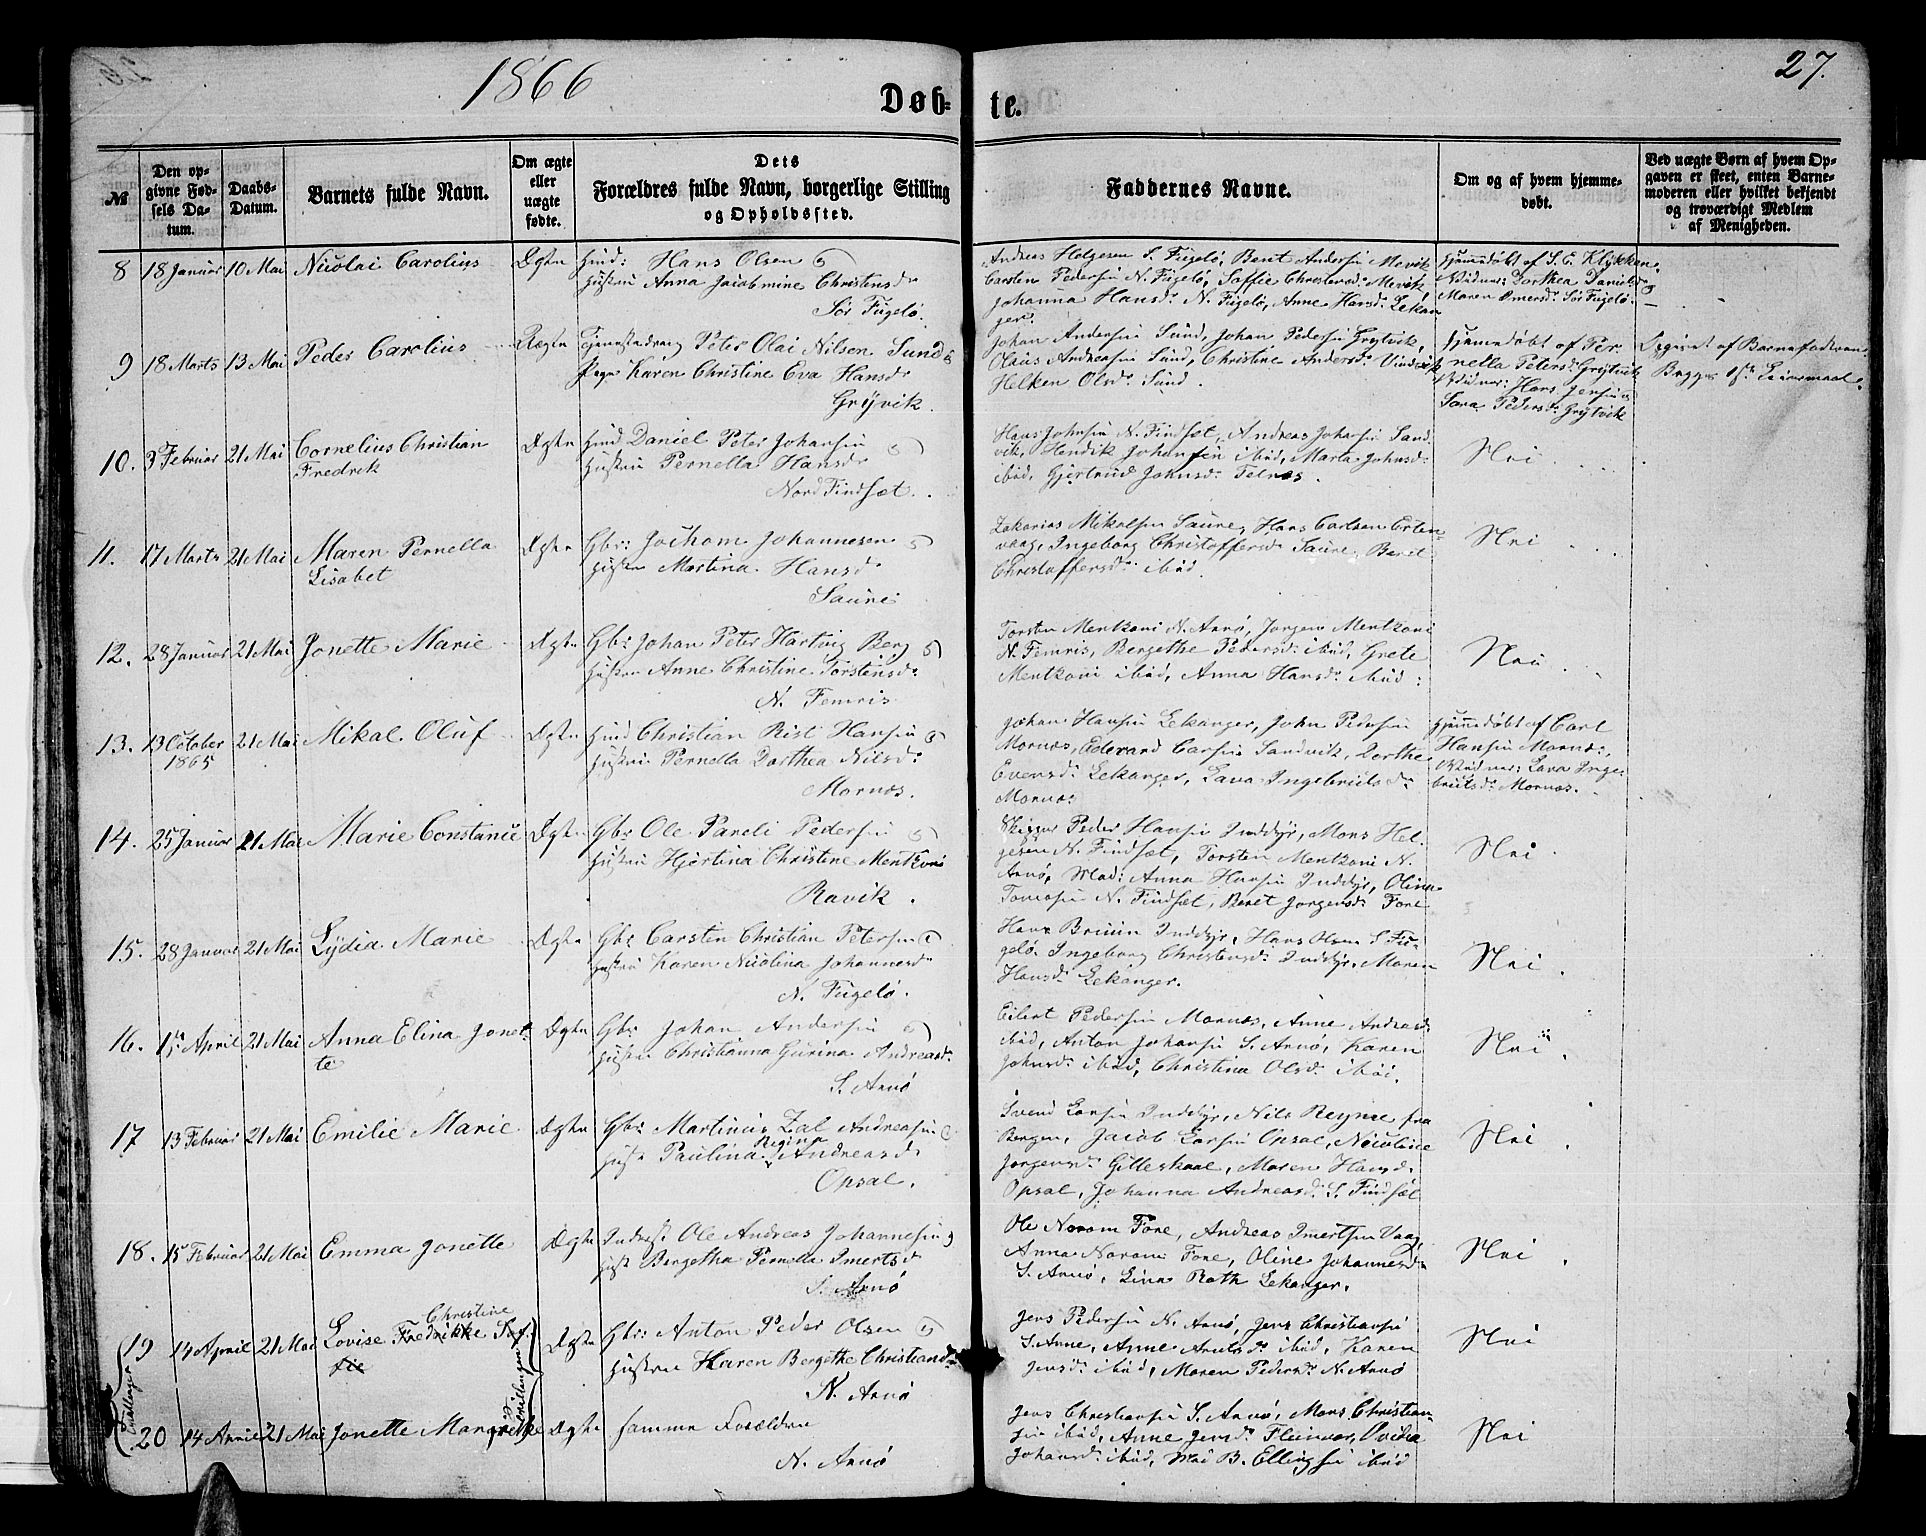 1866
27.
Døb-
te.
№
Den op-
givne Fød-
sels Da-
tum.
Daabs-
Datum.
Barnets fulde Navn.
Om ægte
eller
uægte
fødte.
Dets
Forældres fulde Navn, borgerlige Stilling
og Opholdssted.
Faddernes Navne.
Om og af hvem hjemme-
døbt.
Ved uægte Børn af hvem Op-
gaven er skeet, enten Barne-
moderen eller hvilket bekjendt
og troværdigt Medlem
af Menigheden.
8 18 Januar 10 Mai Nicolai Carolius
Hans Olsen
Hustru Anna Jacobmine Christensdr
Sør Fugelø.
Andreas Helgesen S. Fugelø, Bent Andersen Mevik
Carsten Pedersen N. Fugelø, Saffie Christensd: Mevik
Johanna Hansd: N. Fugelø, Anne Hansd: Lekan
ger.
Hjemmedøbt af
Vidner: Dorthea Danielsd:
Maren Omersd: Sør Fugelø.
9 18 Marts 13 Mai Peder Carolius
Peter Olai Nilsen Sund
Pige Karen Christine Eva Hansdr
Grytvik.
Johan Andersen Sund, Johan Pedersen Grytvik,
Olaus Andreasen Sund, Christine Andersd:
Helken Olsd: Sund.
Hjemmedøbt af Per-
nella Petersd: Grytvik
Vidner: Hans Jensen
Sara Pedersd: Grytvik
Opgivet af Barnefaderen
Begges 1ste Leiermaal.
10. 3 Februar 21 Mai Cornelius Christian
Fredrik
Ægte Daniel Peter Johansen
Hustru Pernella Hansdr
Nord Findsæt.
Hans Johnsen N. Findsæt, Andreas Johansen Sand
vik, Hendrik Johansen ibid, Marta Johnsd:
ibid, Gjertrud Johnsd: Telnes.
Nei
11. 17 Marts 21 Mai Maren Pernella
Lisabet
Ægte Gbr: Jochom Johannesen
Hustru Martina Hansdr
Saure
Zakarias Mikalsen Saure, Hans Carlsen Erten
vaag, Ingeborg Christoffersd: Saure, Beret
Christoffersd: ibid.
Nei
12. 28 Januar 21 Mai Jonette Marie
Ægte Gbr: Johan Peter Hartvig Berg
Hustru Anne Christine Torstensdr
N. Femris
Torsten Mentzoni N. Arnø, Jørgen Mentzoni
N. Femris, Bergethe Pedersd: ibid, Grete
Mentzoni ibid, Anna Hansd: ibid:
Nei
13. 13 October 21 Mai Mikal Oluf
1865
Ægte Christian Rist Hansen
Hustru Pernella Dorthea Nilsd:
Mornæs.
Johan Hansen Lekanger, John Pedersen
Mornæs, Edevard Carsen Sandvik, Dorthe
Evensd: Lekanger, Lava Ingebrigtsdr
Mornæs
Hjemmedøbt af Carl
Hansen Mornæs,
Vidner: Lava Inge-
brigtsd: Mornæs.
14. 25 Januar 21 Mai Marie Constance
Ægte Gbr Ole Pareli Pedersen
Hustru Hjertina Christine Mentzoni
Ravik.
Skipper Peder Hansen Inddyr, Mons Hel-
gesen N. Findsæt, Torsten Mentzoni N.
Arnø, Mad: Anna Hansen Inddyr, Olina
Tomasen N. Findsæt, Beret Jørgensd: Fore
Nei
15. 28 Januar 21 Mai Lydia Marie
Ægte Gbr Carsten Christian Petersen
Hustru Karen Nicolina Johannesdr
N. Fugelø.
Hans Bruun Inddyr, Hans Olsen S. Fu-
gelø, Ingeborg Christensd: Inddyr, Maren
Hansd: Lekanger.
Nei
16. 15 April 21 Mai Anna Elina Jonet-
te
Ægte Gbr Johan Andersen
Hustru Christianna Gurina Andreasd:
S. Arnø
Eilert Pedersen Mornæs, Anne Andreasd:
ibid, Anton Johansen S. Arnø, Karen
Johnsd: ibid, Christina Olsd: ibid.
Nei
17 13 Februar 21 Mai Emilie Marie
Ægte Gbr: Martinus Zal Andreasen
Regina
Hustr Paulina Andreasd:
Opsal.
Svend Larsen Inddyr, Nils Beyer fra
Bergen, Jacob Larsen Opsal, Nicoline
Jørgensd: Gilleskaal, Maren Hansd:
Opsal, Johanna Andreasd: S. Findsæt
Nei
18. 15 Februar 21 Mai Emma Jonette
Ægte Inderst Ole Andreas Johannesen
Hustr Bergetha Pernella Imertsdr
S. Arnø
Ole Norom Fore, Andreas Imertsen Vaag,
Anna Norom Fore, Oline Johannesd:
S. Arnø, Lina Roth Lekanger.
Nei
Christine
19 14 April 21 Mai Lovise Fredrikke Sof-
fie
Ægte Gbr: Anton Peder Olsen
Hustru Karen Bergithe Christiansd:
N. Arnø
Jens Pedersen N. Arnø, Jens Christiansen
S. Arnø, Anne Arntsd: ibid, Karen
Jensd: ibid, Maren Pedersd: N. Arnø
Nei
Tvillinger
20 14 April 21 Mai Jonette Margrethe
Tvillinger
Ægte samme Forældre
N. Arnø
Jens Christiansen S. Arnø, Mons Christian-
sen ibid, Anne Jensd: Fleinvær, Ovidia
Johansd: ibid, Mad B. Ellingsen ibid
Nei